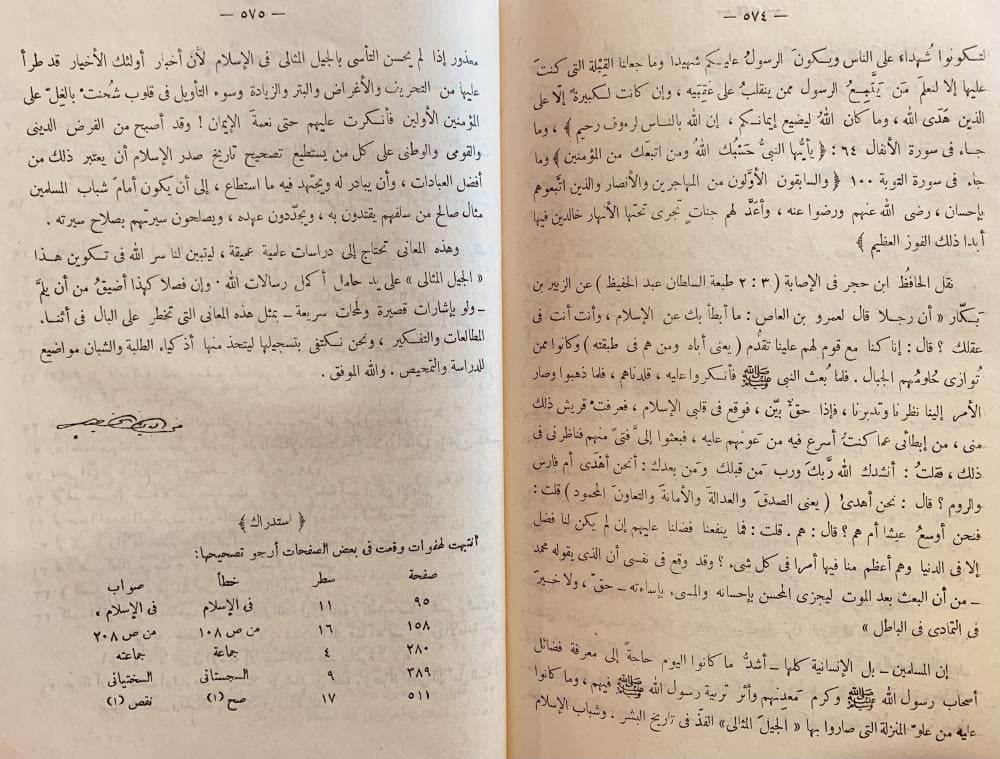 — ٥٧٤ —
لتكونوا شُهداءَ على الناس ويكونَ الرسولُ عليكم شهيدا وما جعلنا القِبْلة التى كنتَ
عليها إلا لنعلمَ مَن يَتَّبِعُ الرسول ممن ينقلبُ على عَقِبَيه ، وإن كانت لكبيرةً إلّا على
الذين هَدَى الله ، وما كان اللهُ ليضيع إيمانكم ، إن الله بالناس لرءوف رحيم ﴾ ، وما
جاء فى سورة الأنفال ٦٤ : ﴿ يأيُّها النبىُّ حَسْبُك اللهُ ومن اتبعَك من المؤمنين ﴾ وما
جاء فى سورة التوبة ١٠٠ ﴿ والسابقون الأوَّلون من المهاجرين والأنصار والذين اتَّبعوهم
بإحسان ، رضى الله عنهم ورضوا عنه ، وأعَدَّ لهم جناتٍ تجرى تحتَها الأنهار خالدين فيها
أبدا ذلك الفوز العظيم ﴾
نقل الحافظُ ابن حجر فى الإصابة ( ٣ : ٢ طبعة السلطان عبد الحفيظ ) عن الزبير بن
بَكَّار « أن رجلا قال لعمرو بن العاص : ما أبطأ بك عن الإسلام ، وأنت أنت فى
عقلك ؟ قال : إنا كنا مع قوم لهم علينا تقدُّم ( يعنى أباه ومن هم فى طبقته ) وكانوا ممن
تُوازى حُلومُهم الجبال . فلما بُعث النبى ﷺ فأنكروا عليه ، قلدناهم ، فلما ذهبوا وصار
الأمر إلينا نظرنا وتدبرنا ، فإذا حقٌّ بيِّن ، فوقع فى قلبى الإسلام ، فعرفتْ قريش ذلك
منى ، من إبطائى عما كنتُ أسرع فيه من عَونهم عليه ، فبعثوا إلىَّ فتىً منهم فناظرنى فى
ذلك ، فقلتُ : أنشدك الله ربَّكَ ورب مَن قبلك ومَن بعدك : أنحن أهْدَى أم فارس
والروم ؟ قال : نحن أهدى ! ( يعنى الصدقَ والعدالةَ والأمانةَ والتعاونَ المحمود ) قلت :
فنحن أوسعُ عيشا أم هم ؟ قال : هم . قلت : فما ينفعنا فضلنا عليهم إن لم يكن لنا فضل
إلا فى الدنيا وهم أعظم منا فيها أمرا فى كل شىء ؟ وقد وقع فى نفسى أن الذى يقوله محمد
ــ من أن البعث بعد الموت ليجزى المحسن بإحسانه والمسىء بإساءته ــ حقّ ، ولا خيرَ
فى التمادى فى الباطل »
إن المسلمين ــ بل الإنسانية كلها ــ أشدُّ ما كانوا اليوم حاجةً إلى معرفة فضائل
أصحاب رسول الله ﷺ وكرم مَعدِنهم وأثر تربية رسول الله ﷺ فيهم ، وما كانوا
عليه من علوّ المنزلة التى صاروا بها « الجيلَ المثالى » الفذّ فى تاريخ البشر . وشباب الإسلام
— ٥٧٥ —
معذور إذا لم يحسن التأسى بالجيل المثالى فى الإسلام لأن أخبار أولئك الأخيار قد طرأ
عليها من التحريف والأغراض والبتر والزيادة وسوء التأويل فى قلوب شُحنتْ بالغِلّ على
المؤمنين الأولين فأنكرت عليهم حتى نعمةَ الإيمان ! وقد أصبح من الفرض الدينى
والقومى والوطنى على كل من يستطيع تصحيح تاريخ صدر الإسلام أن يعتبر ذلك من
أفضل العبادات ، وأن يبادر له ويجتهد فيه ما استطاع ، إلى أن يكون أمامَ شباب المسلمين
مثال صالح من سلفهم يقتدون به ، ويجدّدون عهده ، ويصلحون سيرتهم بصلاح سيرته .
وهذه المعانى تحتاج إلى دراسات علمية عميقة ، ليتبين لنا سر الله فى تكوين هذا
« الجيل المثالى » على يد حامل أكمل رسالات الله . وإن فصلا كهذا أضيقُ من أن يلمَّ
ــ ولو بإشارات قصيرة ولمحات سريعة ــ بمثل هذه المعانى التى تخطر على البال فى أثناء
المطالعات والتفكير ، ونحن نكتفى بتسجيلها ليتخذ منها أذكياء الطلبة والشبان مواضيع
للدراسة والتمحيص . والله الموفق .
محب الدين الخطيب
﴿ استدراك ﴾
انتبهت لهفوات وقعت فى بعض الصفحات أرجو تصحيحها :
صفحة سطر خطأ صواب
٩٥ ١١ فى الإسلام فى الإسلام ،
١٥٨ ١٦ من ص ١٠٨ من ص ٢٠٨
٢٨٠ ٤ جماعة جماعته
٣٨٩ ٩ السجستانى السختيانى
٥١١ ١٧ صح (١) نقص (١)